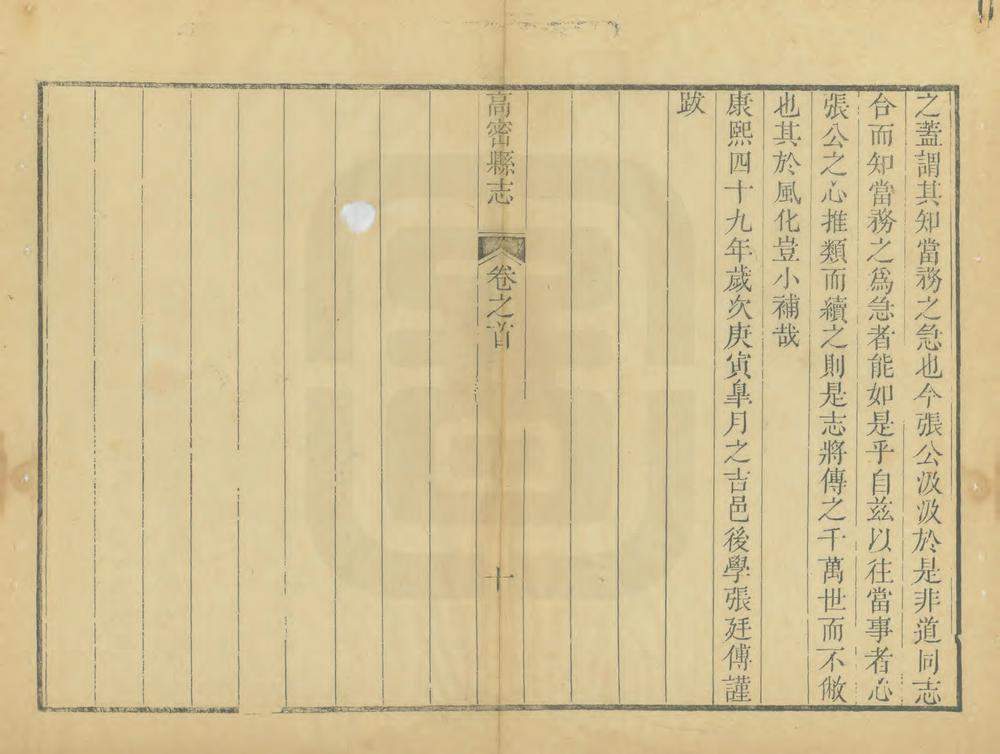 之蓋謂其知當務之急也今張公汲汲於是非道同志
合而知當務之為急者能如是乎自茲以往當事者心
張公之心推類而續之則是志將傳之千萬世而不敝
也其於風化豈小補哉
康熙四十九年歲次庚寅臯月之吉邑後學張廷傅謹
跋
高密縣志
卷之首
十